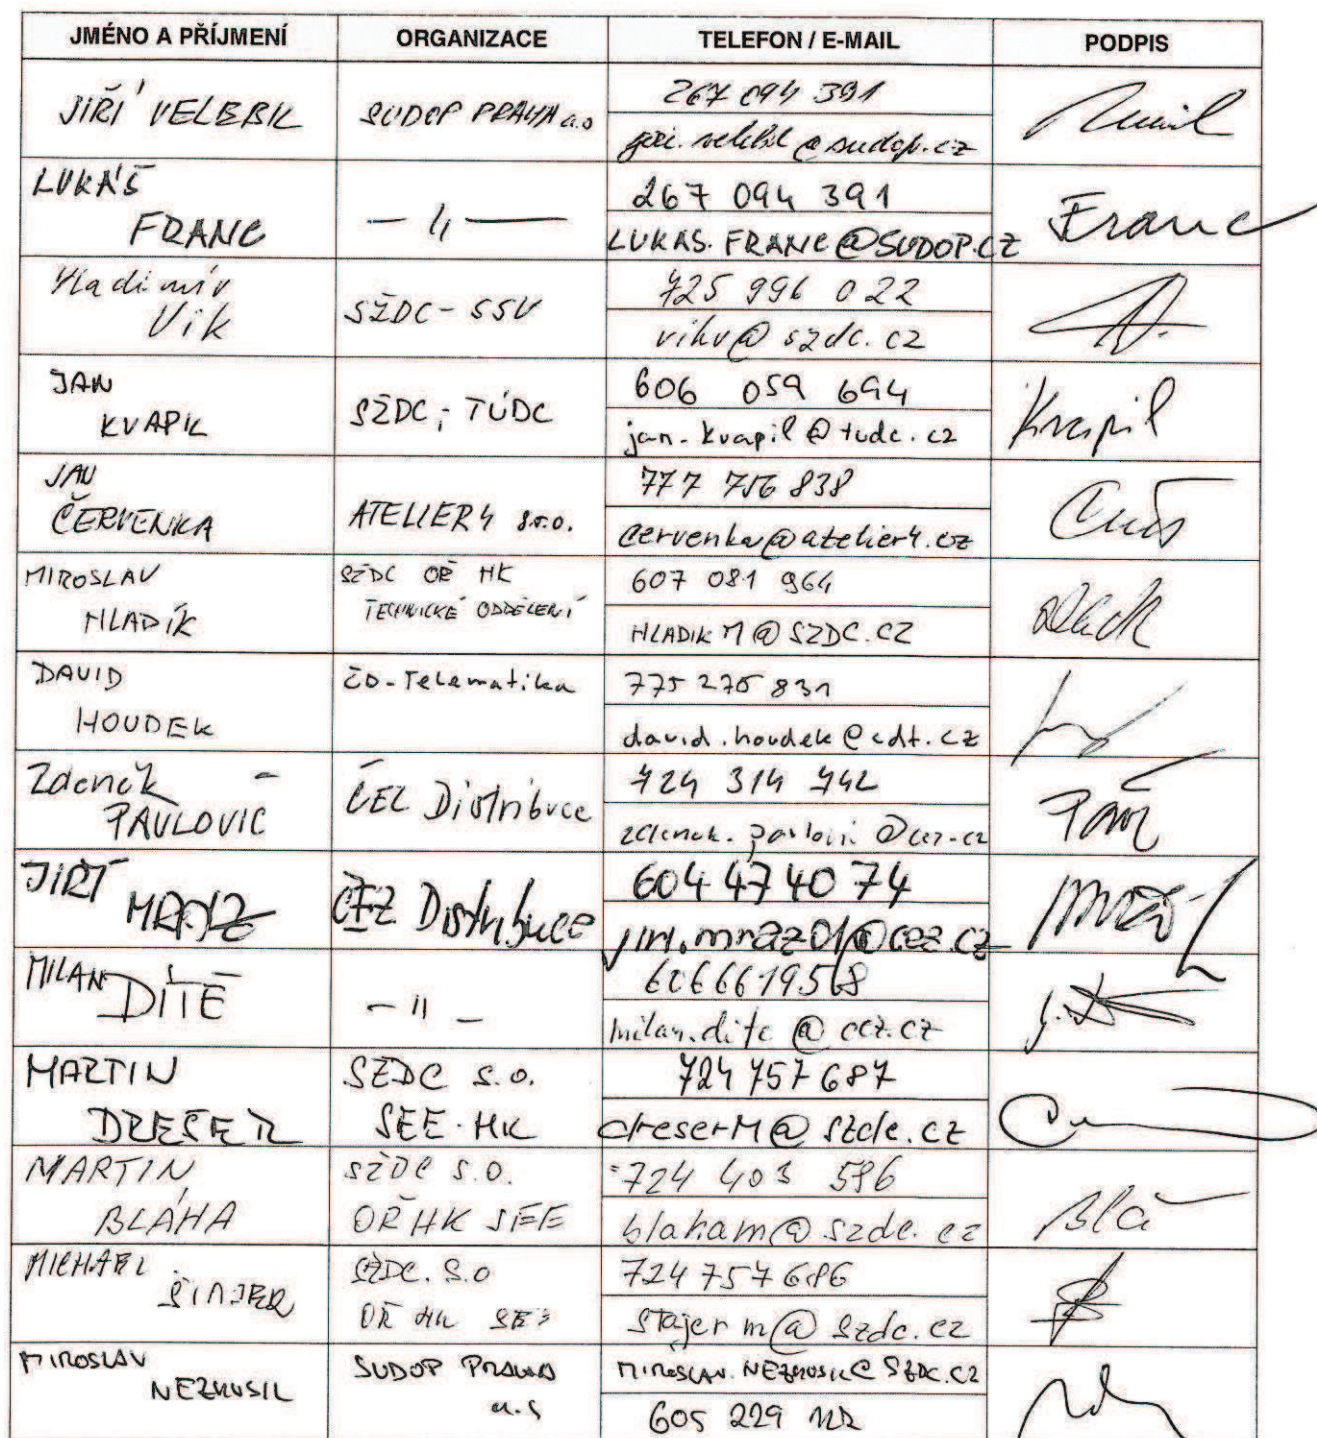 JMÉNO A PŘÍJMENÍ ORGANIZACE TELEFON / E-MAIL PODPIS
JIŘÍ VELEBIL SUDOP PRAHA a.s
267 094 391
jiri.velebil@sudop.cz
LUKÁŠ
FRANC
— 11 —
267 094 391
LUKAS.FRANC@SUDOP.CZ
Franc
Vladimír
Vik
SŽDC - SSV
725 996 022
vikv@szdc.cz
JAN
KVAPIL
SŽDC, TÚDC
606 059 694
jan.kvapil@tudc.cz
Kvapil
JAN
ČERVENKA
ATELIER 4 s.r.o.
777 756 838
cervenka@atelier4.cz
MIROSLAV
HLADÍK
SŽDC OŘ HK
TECHNICKÉ ODDĚLENÍ
607 081 964
HLADIKM@SZDC.CZ
DAVID
HOUDEK
ČD-Telematika
775 275 831
david.houdek@cdt.cz
Zdeněk
PAVLOVIČ
ČEZ Distribuce
724 314 742
zdenek.pavlovic@cez.cz
JIŘÍ
MRÁZ
ČEZ Distribuce
604 474 074
jiri.mraz01@cez.cz
MILAN DÍTĚ
- 11 -
606619568
milan.dite@cez.cz
MARTIN
DREŠER
SŽDC s.o.
SEE-HK
724 757 687
dreserM@szdc.cz
MARTIN
BLÁHA
SŽDC s.o.
OŘ HK SEE
724 403 596
blaham@szdc.cz
MICHAEL
ŠTAJER
SŽDC. s.o
OŘ HK SEE
724 757 686
stajerm@szdc.cz
MIROSLAV
NEZKUSIL
SUDOP PRAHA
a.s
MIROSLAV.NEZKUSIL@SZDC.CZ
605 229